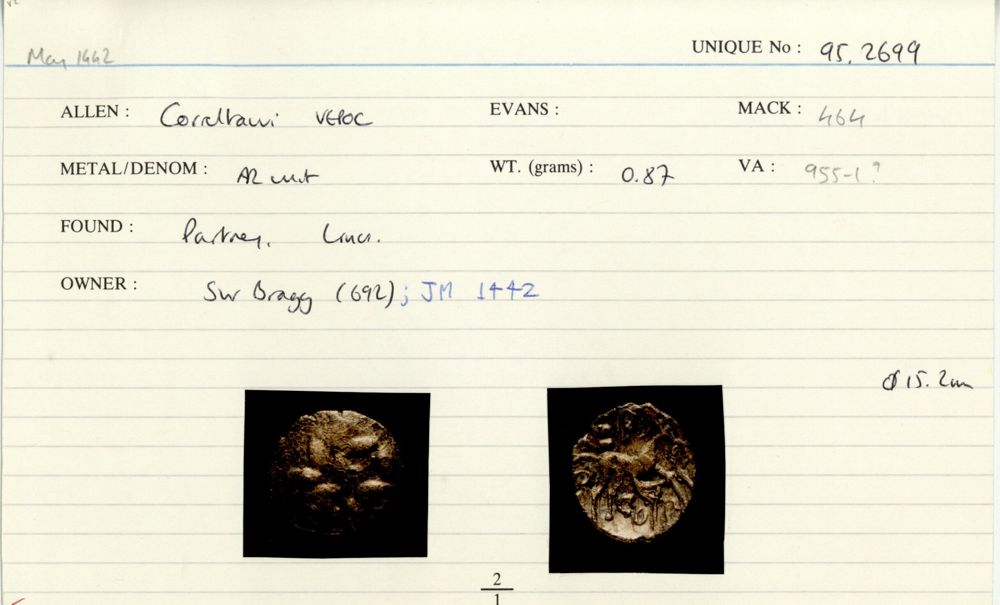 May 1442
UNIQUE No : 95. 2699
ALLEN : Corieltauvi VEPOC EVANS : MACK : 464
METAL/DENOM : AR unit WT. (grams) : 0.87 VA : 955-1 ?
FOUND : Partney, Lincs.
OWNER : SW Bragg (692); JM 1442
Ø 15.2mm
2
1